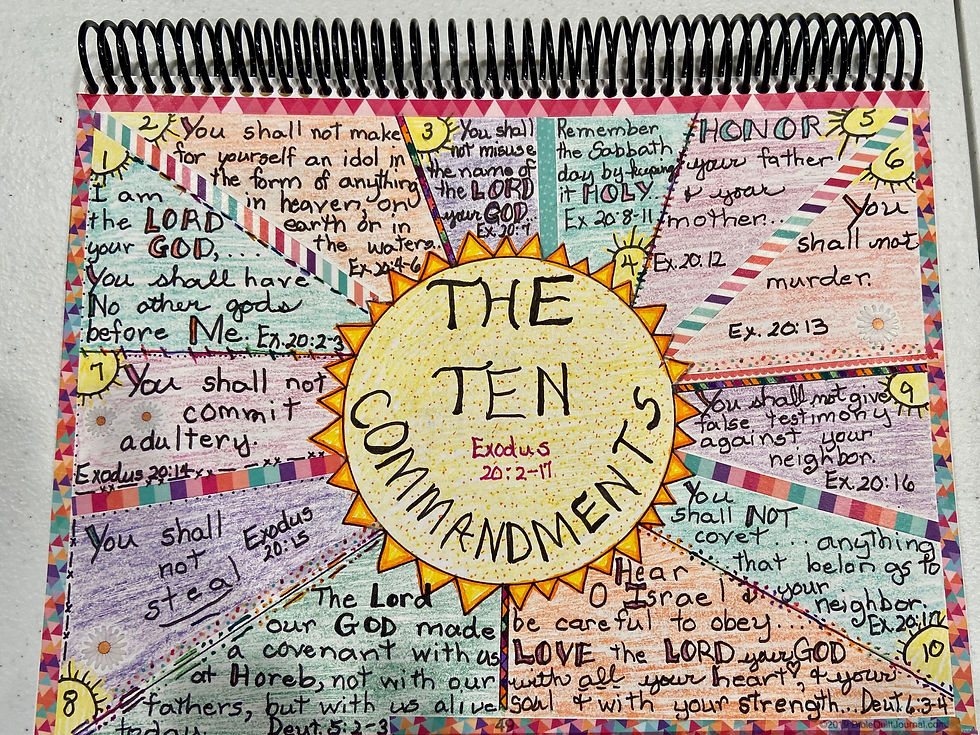 1
I am
the LORD
your GOD,....
You shall have
No other gods
before Me.
Ex. 20:2-3
2
You shall not make
for yourself an idol in
the form of anything
in heaven, on
earth or in
the waters.
Ex. 20:4-6
3
You shall
not misuse
the name of
the LORD
your GOD...
Ex. 20:7
Remember
the Sabbath
day by keeping
it HOLY
Ex. 20:8-11
4
HONOR
your father
& your
mother...
Ex. 20.12
5
6
You
shall not
murder.
Ex. 20:13
THE
TEN
COMMANDMENTS
Exodus
20:2-17
7
You shall not
commit
adultery.
Exodus 20:14
You shall
not
steal
Exodus
20:15
8
9
You shall not give
false testimony
against your
neighbor.
Ex. 20:16
You
shall NOT
covet.... anything
that belongs to
your
neighbor.
Ex. 20:17
10
The Lord
our GOD made
a covenant with us
at Horeb, not with our
fathers, but with us alive
today
Deut. 5:2-3
Hear
O Israel &
be careful to obey...
LOVE the LORD your GOD
with all your heart, & your
soul & with your strength... Deut. 6:3-4
49
BibleQuiltJournal.com